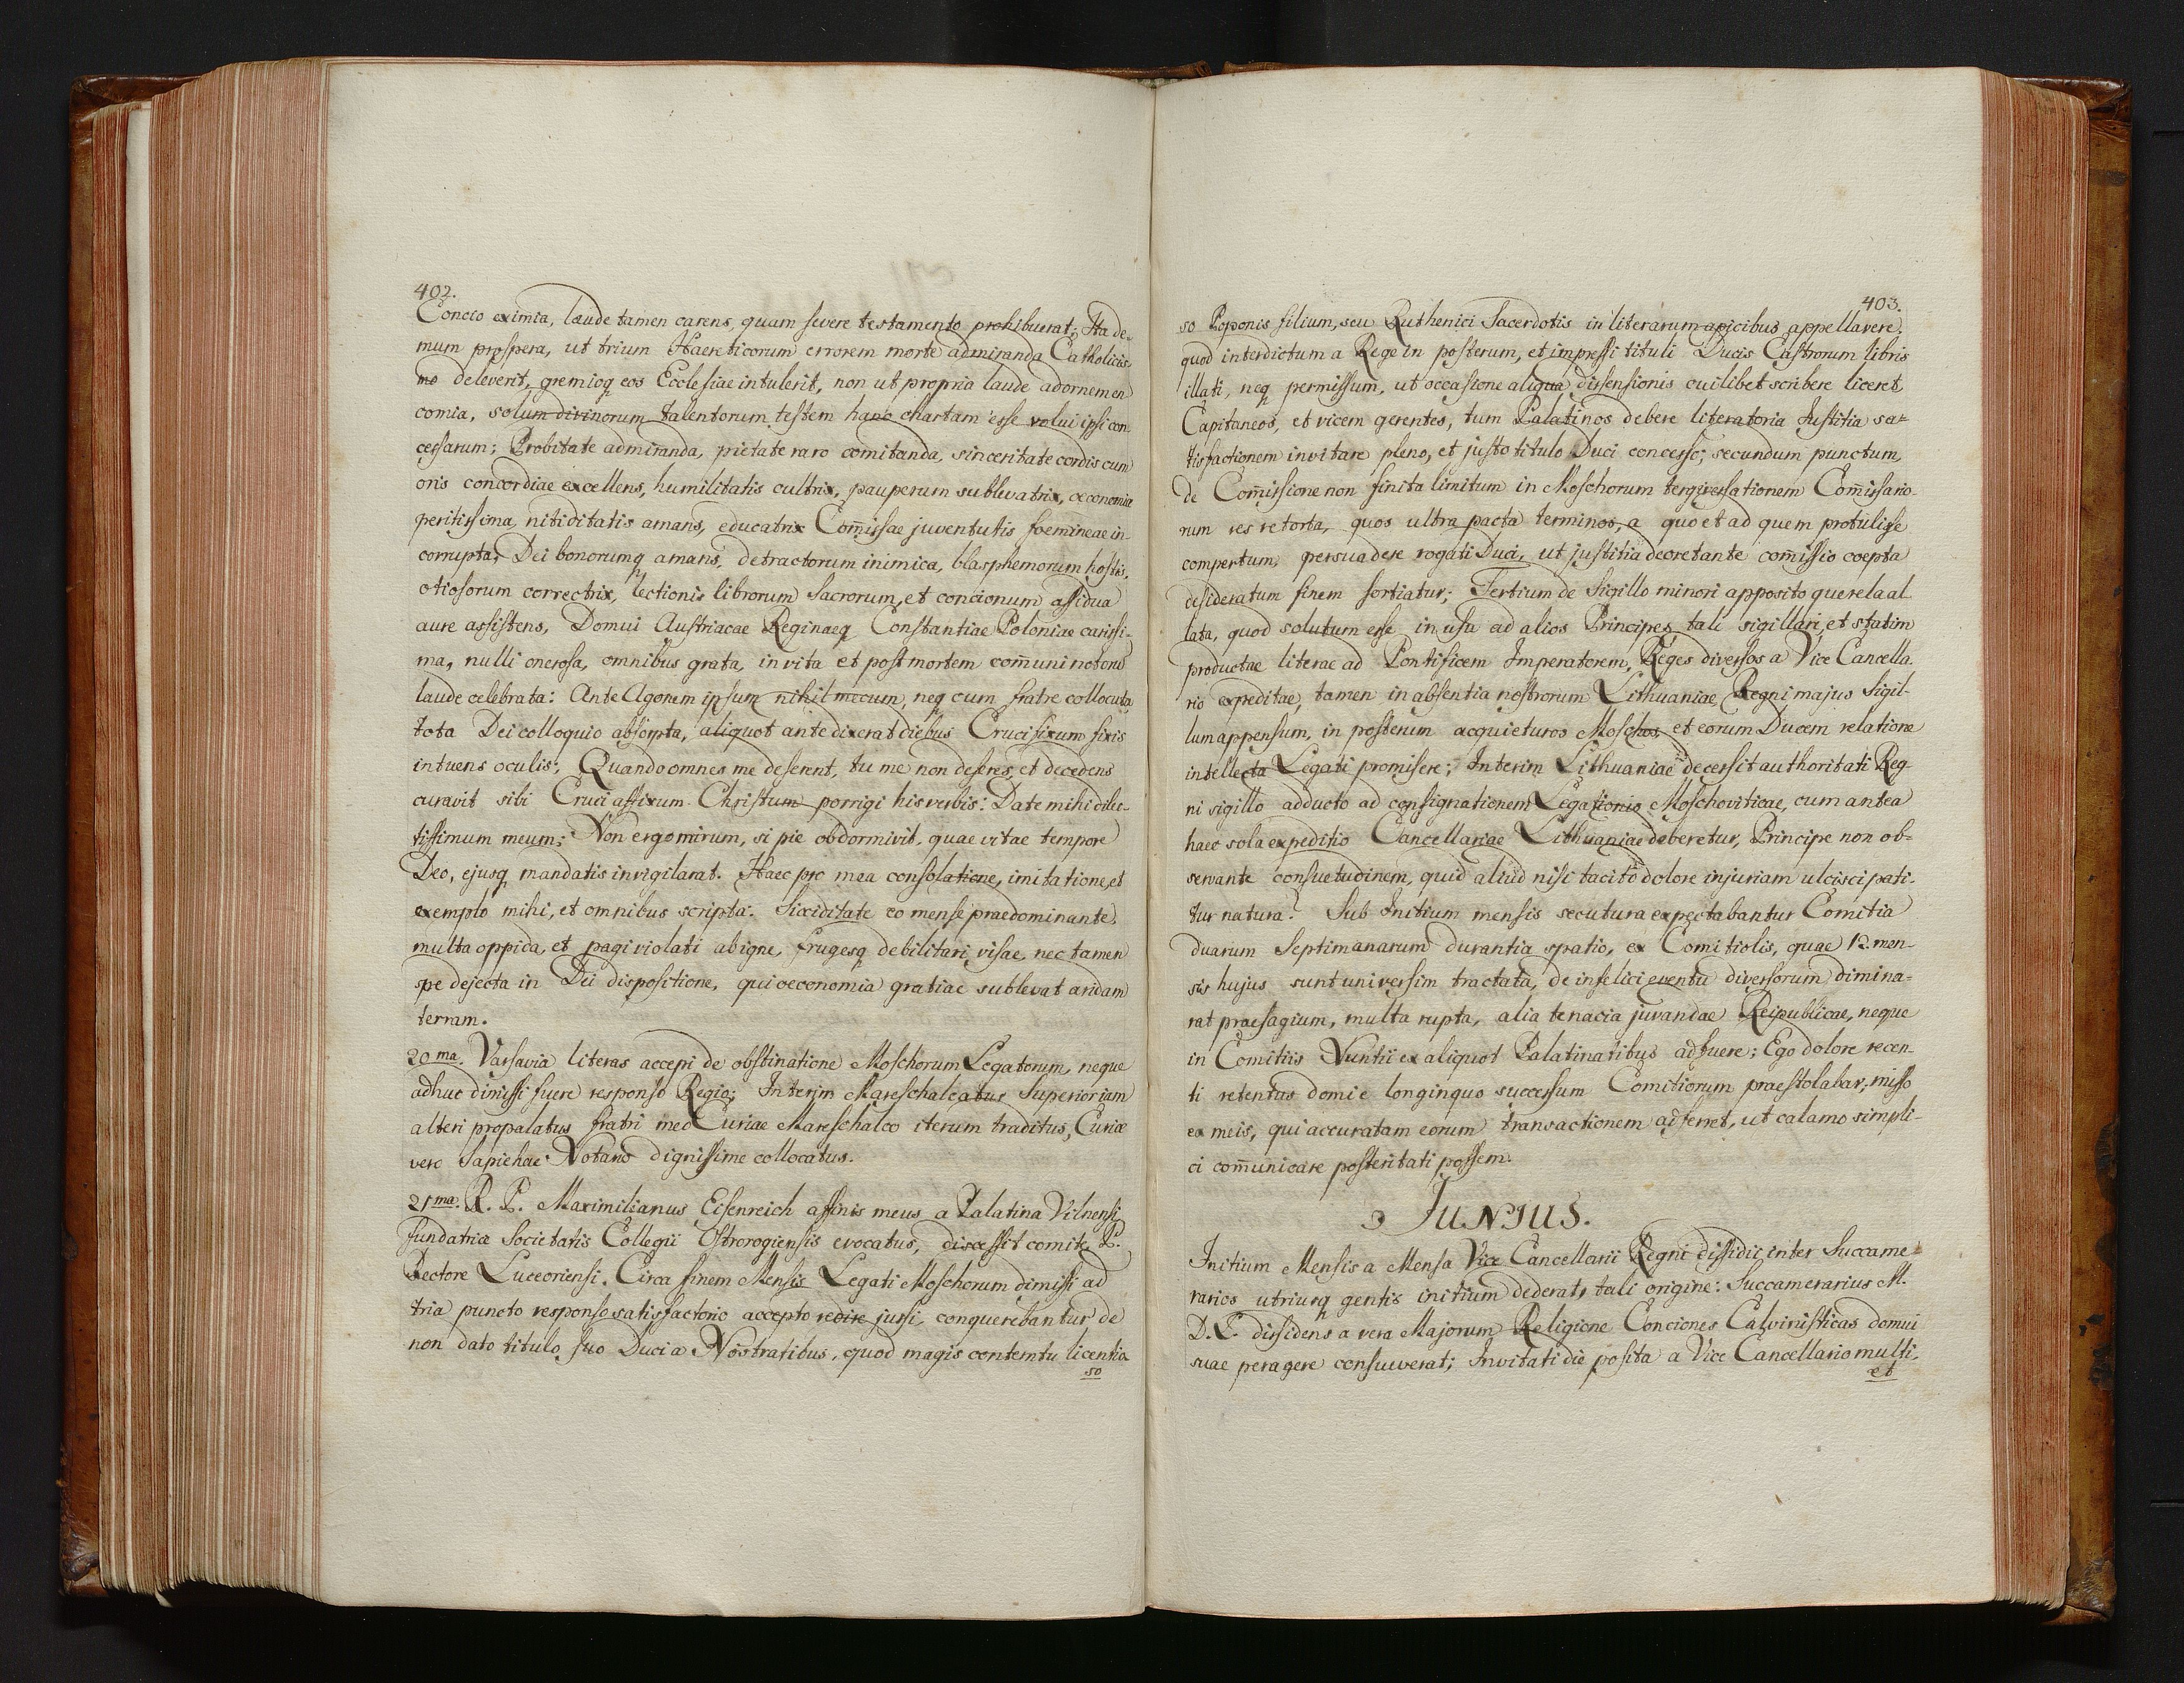 402.
Concio eximia, laude tamen carens, quam severe testamento prohibuerat; Ita de-
mum prospera, ut trium Haereticorum errorem morte admiranda Catholicis-
mo deleverit, gremioq eos Ecclesiae intulerit, non ut propria laude adornem en
comia, solum divinorum talentorum testem hanc chartam esse volui ipsi con-
cessarum; Probitate admiranda, pietate raro comitanda, sinceritate cordis cum
oris concordiae excellens, humilitatis cultrix, pauperum sublevatrix, oeconomiae
peritissima, nitiditatis amans, educatrix Com̄issae juventutis foemineae in-
corrupta; Dei bonorumq amans, detractorum inimica, blasphemorum hostis,
otiosorum correctrix, lectionis librorum Sacrorum, et concionum assidua
aure assistens, Domui Austriacae Reginaeq Constantiae Poloniae carissi-
ma, nulli onerosa, omnibus grata, in vita et post mortem com̄uni notorie
laude celebrata: Ante Agonem ipsum nihil mecum, neq cum fratre collocuta,
tota Dei colloquio absorpta, aliquot ante dixerat diebus Crucifixum fixis
intuens oculis; Quando omnes me deserent, tu me non deseres, et decedens
curavit sibi Cruci affixum Christum porrigi his verbis: Date mihi dilec-
tissimum meum; Non ergo mirum, si pie obdormivit, quae vitae tempore
Deo, ejusq mandatis invigilarat. Haec pro mea consolatione, imitatione, et
exemplo mihi, et omnibus scripta. Sicciditate eo mense praedominante,
multa oppida, et pagi violati ab igne, frugesq debilitari visae, nec tamen
spe dejecta in Dei dispositione, qui oeconomia gratiae sublevat aridam
terram.
20ma. Varsavia literas accepi de obstinatione Moschorum Legatorum, neque
adhuc dimissi fuere responso Regio; Interim Mareschalcatus Superioriam
alteri propalatus fratri meo Curiae Mareschalco iterum traditus, Curiae
vero Sapiehae Notario dignissime collocatus.
21ma. R. P. Maximilianus Eisenreich affinis meus a Palatina Vilnensi
fundatrice Societatis Collegii Ostrorogiensis evocatus, discessit comite P.
Rectore Luceoriensi. Circa finem Mensis Legati Moschorum dimissi ad
tria puncto responso satisfactorio accepto redire jussi, conquerebantur de
non dato titulo suo Duci a Nostratibus, quod magis contemtu licentio-
so
403.
so Poponis filium, seu Ruthenici Sacerdotis in literarum apicibus appellavere,
quod interdictum a Rege in posterum, et impressi tituli Ducis Castrorum libris
illati, neq permissum, ut occasione aliqua dissensionis cuilibet scribere liceret,
Capitaneos, et vicem gerentes, tum Palatinos debere literatoria Justitia sa-
tisfactionem invitare pleno, et justo titulo Duci concesso; secundum punctum,
de Com̄issione non finita limitum in Moschorum tergiversationem Com̄issario-
rum res retorta, quos ultra pacta terminos, a quo et ad quem protulisse
compertum, persuadere rogati Duci, ut justitia decretante com̄issio coepta
desideratum finem sortiatur; Tertium de Sigillo minori apposito querela al-
lata, quod solutum esse in usu ad alios Principes, tali sigillari, et statim
productae literae ad Pontificem Imperatorem, Reges diversos a Vice Cancella-
rio expeditae, tamen in absentia nostrorum Lithuaniae, Regni majus Sigil-
lum appensum, in posterum acquieturos Moschos, et eorum Ducem relatione
intellecta Legati promisere; Interim Lithuaniae decessit authoritati Reg-
ni sigillo adducto ad consignationem Legationis Moschoviticae, cum antea
haec sola expeditio Cancellariae Lithuaniae deberetur, Principe non ob-
servante consuetudinem, quid aliud nisi tacito dolore injuriam ulcisci pati-
tur natura? Sub Initium mensis secutura expectabantur Comitia
duarum Septimanarum durantia spatio, ex Comitiolis, quae 12. men-
sis hujus sunt universim tractata, de infelici eventu diversorum dimina-
rat praesagium, multa rupta, alia tenacia juvandae Reipublicae, neque
in Comitiis Nuntii ex aliquot Palatinatibus adfuere; Ego dolore recen-
ti retentus domi e longinquo successum Comitiorum praestolabar, misso
ex meis, qui accuratam eorum transactionem adferret, ut calamo simpli-
ci com̄unicare posteritati possem.
JUNIUS.
Initium Mensis a Mensa Vice Cancellarii Regni dissidii inter Succame-
rarios utriusq gentis initium dederat, tali origine: Succamerarius M.
D. L. dissidens a vera Majorum Religione Conciones Calvinisticas domui
suae peragere consueverat; Invitati die posita a Vice Cancellario multi,
et